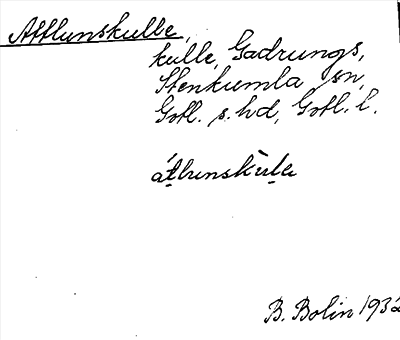 Attlunskulle,
kulle, Gadrungs,
Stenkumla sn,
Gotl. s. hd, Gotl. l.
átlunskùla
B. Bolin 1932